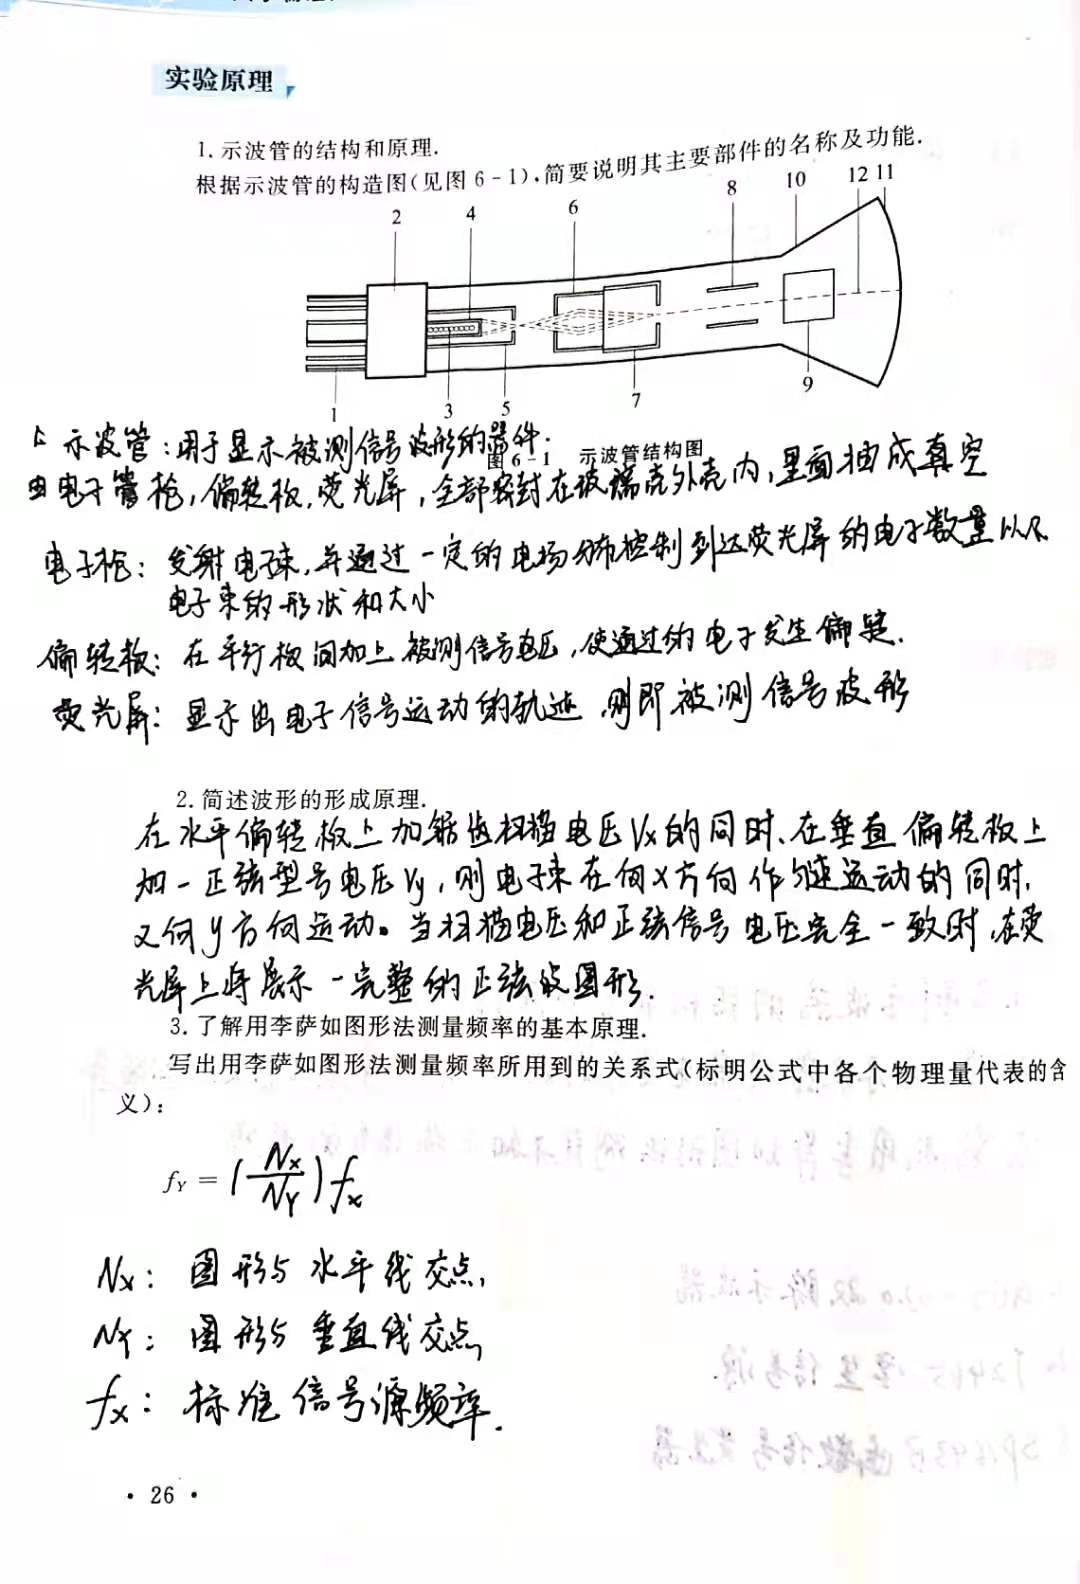 实验原理
1. 示波管的结构和原理.
根据示波管的构造图(见图 6-1),简要说明其主要部件的名称及功能.
2 4 6 8 10 12 11
1 3 5 7 9
图 6-1 示波管结构图
示波管:用于显示被测信号波形的器件.
由电子管枪,偏转板,荧光屏,全部密封在玻璃壳外壳内,里面抽成真空
电子枪:发射电子束,并通过一定的电场分布控制到达荧光屏的电子数量以及
电子束的形状和大小
偏转板:在平行板间加上被测信号电压,使通过的电子发生偏转.
荧光屏:显示出电子信号运动的轨迹,则即被测信号波形
2. 简述波形的形成原理.
在水平偏转板上加锯齿扫描电压Vx的同时、在垂直偏转板上
加一正弦型号电压Vy,则电子束在向x方向作匀速运动的同时,
又向y方向运动。当扫描电压和正弦信号电压完全一致时,在荧
光屏上将展示一完整的正弦波图形.
3. 了解用李萨如图形法测量频率的基本原理.
写出用李萨如图形法测量频率所用到的关系式(标明公式中各个物理量代表的含
义):
fY = (Nx/NY)fx
Nx: 图形与水平线交点,
NY: 图形与垂直线交点,
fx: 标准信号源频率.
· 26 ·